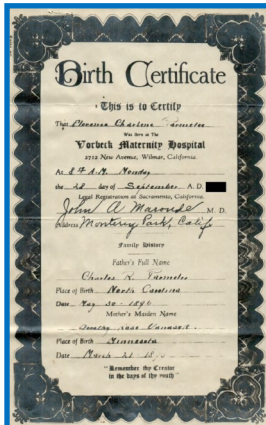 Birth Certificate
This is to Certify
That Charlene
Was Born at The
Vorbeck Maternity Hospital
2712 New Avenue, Wilmar, California.
At 8 A.M. Monday
the 28 day of September A. D.
Legal Registration at Sacramento, California.
John A M. D.
Address Monterey Park, Calif
Family History
Father's Full Name
Charles
Place of Birth North Carolina
Date May 30 -
Mother's Maiden Name
Dorothy Rose
Place of Birth Minnesota
Date March 21
"Remember thy Creator
in the days of thy youth"